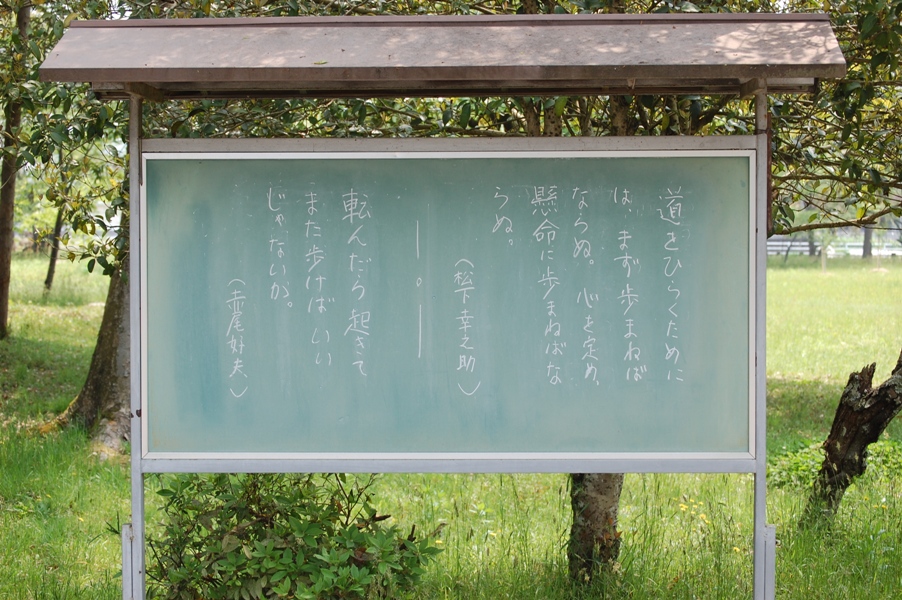 道をひらくために
は、まず歩まねば
ならぬ。心を定め、
懸命に歩まねばな
らぬ。
(松下幸之助)
―。―
転んだら起きて
また歩けばいい
じゃないか。
(赤尾好夫)